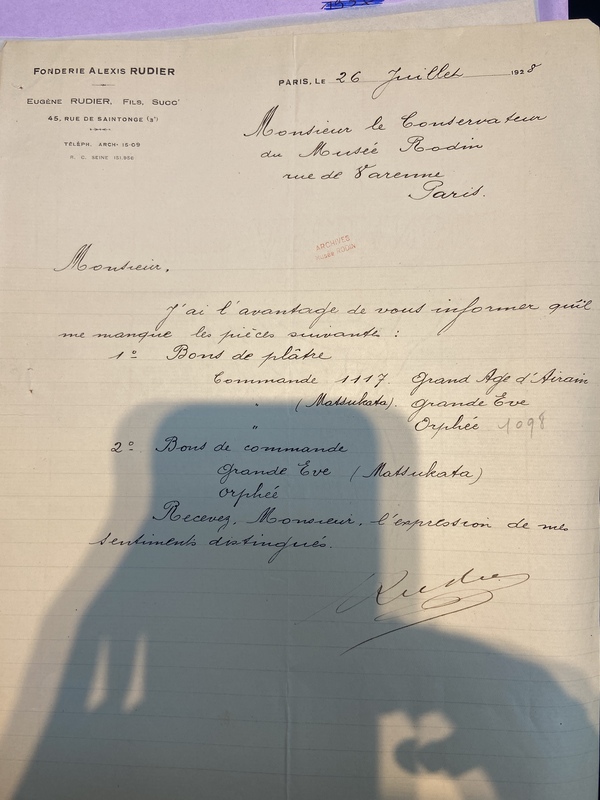 FONDERIE ALEXIS RUDIER
EUGÈNE RUDIER, FILS, SUCCr
45, RUE DE SAINTONGE (3e)
TÉLÉPH. ARCH. 16-09
R. C. SEINE 121.956
PARIS, LE 26 Juillet 1928
Monsieur le Conservateur
du Musée Rodin
rue de Varenne
Paris.
ARCHIVES
MUSÉE RODIN
Monsieur,
J'ai l'avantage de vous informer qu'il
me manque les pièces suivantes :
1º Bons de plâtre
Commande 1117. Grand Age d'Airain
" (Matsukata). Grande Eve
" Orphée 1098
2º Bons de commande
Grande Eve (Matsukata)
Orphée
Recevez, Monsieur, l'expression de mes
sentiments distingués.
Rudier